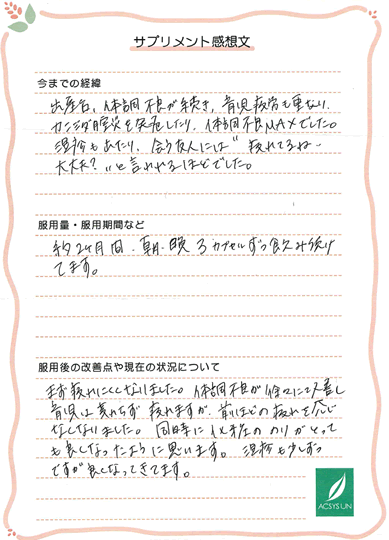 サプリメント感想文
今までの経緯
出産後、体調不良が続き、育児疲労も重なり、
カンジダ膣炎を発症したり、体調不良MAXでした。
湿疹もあったり、会う友人には"疲れてるね…
大丈夫?"と言われるほどでした。
服用量・服用期間など
約2ヶ月間、朝・晩 3カプセルずつ飲み続け
てます。
服用後の改善点や現在の状況について
まず疲れにくくなりました。体調不良が徐々に改善し
育児は変わらず疲れますが、前ほどの疲れを感じ
なくなりました。同時に化粧ののりがとって
も良くなったように思います。湿疹も少しずつ
ですが良くなってきてます。
ACSYSUN